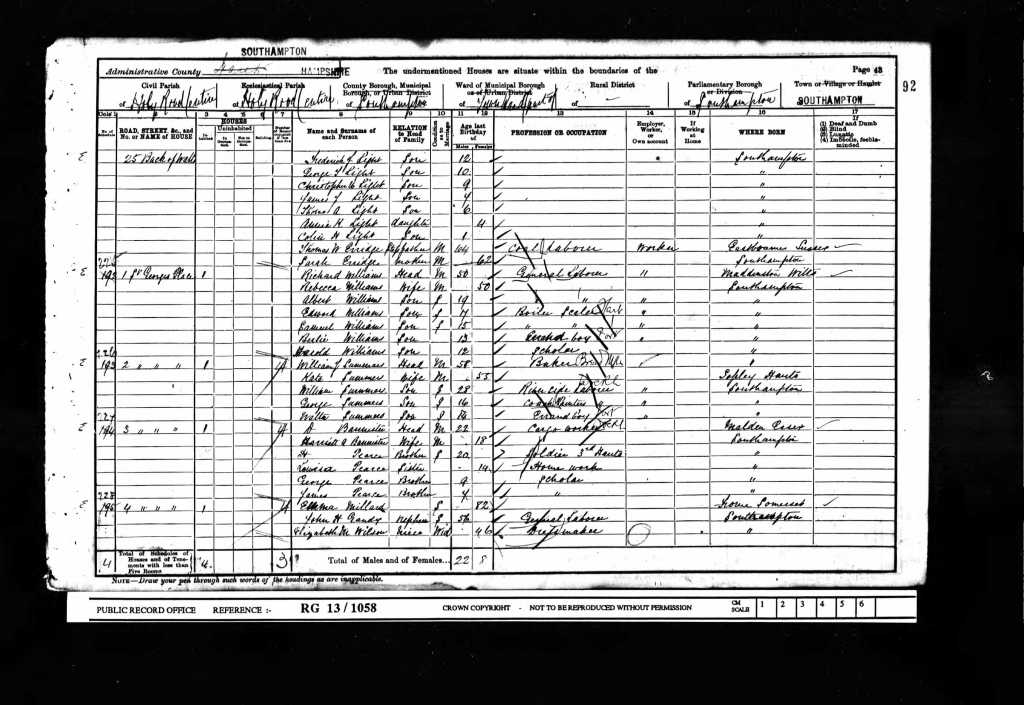 SOUTHAMPTON
Administrative County HAMPSHIRE The undermentioned Houses are situate within the boundaries of the Page 43
92
Civil Parish Ecclesiastical Parish County Borough, Municipal Borough, or Urban District Ward of Municipal Borough or of Urban District Rural District Parliamentary Borough or Division Town or Village or Hamlet
of Holy Rood (entire) of Holy Rood (entire) of Southampton of of - of Southampton SOUTHAMPTON
ROAD, STREET, &c., and No. or NAME of HOUSE HOUSES Uninhabited Name and Surname of each Person RELATION to Head of Family Age last Birthday of Males Females PROFESSION OR OCCUPATION Employer, Worker, or Own account If Working at Home WHERE BORN If (1) Deaf and Dumb (2) Blind (3) Lunatic (4) Imbecile, feeble-minded
25 Back of Walls Frederick J. Light Son 12 Southampton
George Light Son 10 "
Christopher Light Son 9 "
James Light Son 7 "
Thomas A. Light Son 6 "
H Light daughter 4 "
Colin H Light Son 1 "
Thomas W. Erridge father M Coal Labourer Worker Eastbourne Sussex
Sarah Erridge mother M 62 Southampton
225
192 1 St Georges Place 1 Richard Williams Head M 50 General Labourer " Wilts
Rebecca Williams Wife M 50 Southampton
Albert Williams Son S 19 " "
Edward Williams Son S 17 Boiler Scaler " "
Samuel Williams Son S 15 " " "
Bertie Williams Son 13 Errand boy "
Harold Williams Son 12 Scholar "
226
193 2 " " " 1 William J Summers Head M 58 Baker "
Kate Summers Wife M 55 Sopley Hants
William Summers Son S 28 River side Labourer " Southampton
George Summers Son S 16 Coach Painters " "
Walter Summers Son S 14 Errand boy " "
227
194 3 " " " 1 D Bannister Head M 22 Cargo worker " Malden Essex
Harriett A Bannister Wife M 18 Southampton
H Pearce Brother S 20 Soldier 3rd Hants "
Louisa Pearce Sister 14 Home work "
George Pearce Brother 9 Scholar "
James Pearce Brother 7 " "
228
195 4 " " " 1 Emma Millard S 82 Somerset
John H Gandy Nephew S 56 General Labourer Southampton
Elizabeth M Wilson Niece Wid 46 "
4 Total of Schedules of Houses and of Tenements with less than Five Rooms 4 3 Total of Males and of Females... 22 8
NOTE—Draw your pen through such words of the headings as are inapplicable.
PUBLIC RECORD OFFICE REFERENCE :- RG 13/1058 CROWN COPYRIGHT - NOT TO BE REPRODUCED WITHOUT PERMISSION CM SCALE 1 2 3 4 5 6